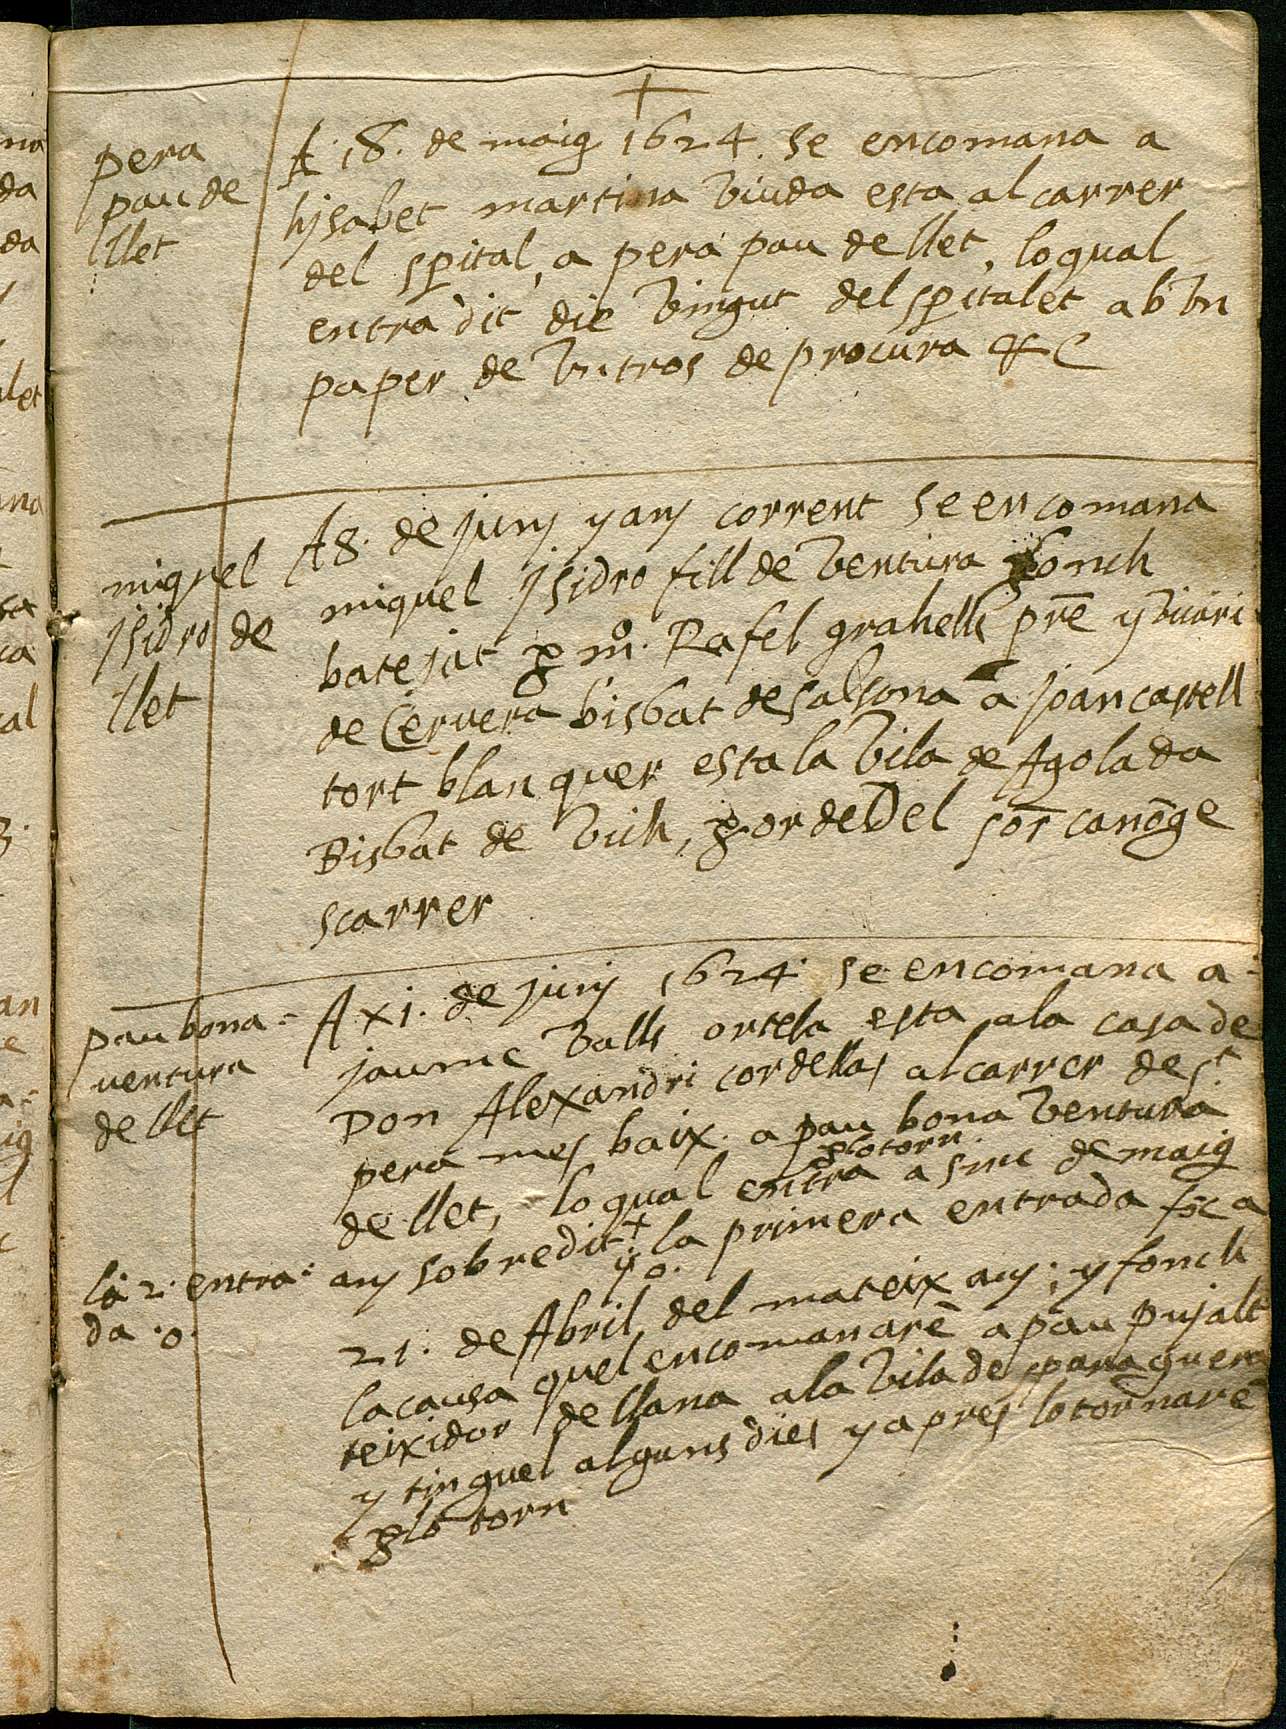 +
pera
pau de
llet
A 18. de maig 1624 se encomana a
hisabet martina viuda esta al carrer
del spital, a pera pau de llet, lo qual
entra dit die vingut del spitalet ab vn
paper de vntros de procura &c
miquel
jsidro de
llet
A 8. de juny y any corrent se encomana
miquel jsidro fill de ventura fonch
batejat p mº. Rafel grahells pre y vicari
de Cervera bisbat de Salsona a joan castell
tort blanquer esta la vila de Agolada
Bisbat de vich, p orde Del sor canõge
scarrer
pau bona-
ventura
de llet
A xi. de juny 1624. se encomana a
jaume valls ortela esta a la casa de
Don Alexandri cordellas al carrer de st
pera mes baix. a pau bona ventura
p lo torn
de llet, lo qual entra a sinc de maig
any sobredit + y la primera entrada fõc a
la 2. entra-
da .o.
y o.
21. de Abril del mateix any; y fonch
la causa quel encomanarẽ a pau pujalt
teixidor de llana a la vila de sparaguera
y tinguel alguns dies y apres lo tornarẽ
p lo torn